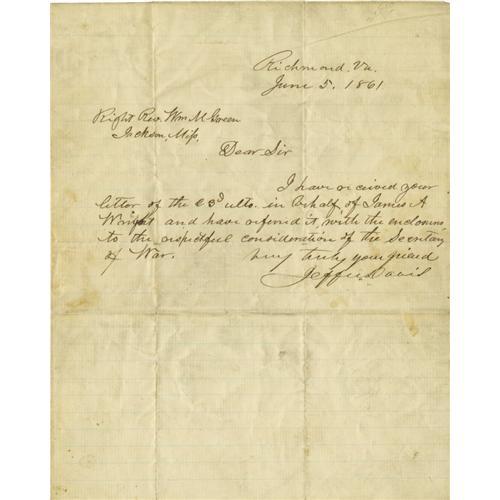 Richmond, Va.
June 5. 1861
Right Rev. Wm M Green
Jackson, Miss.
Dear Sir
I have received your
letter of the 23d ulto. in behalf of James A
Wright and have referred it, with the enclosure
to the respectful consideration of the Secretary
of War.
Very truly your friend
Jeffn Davis